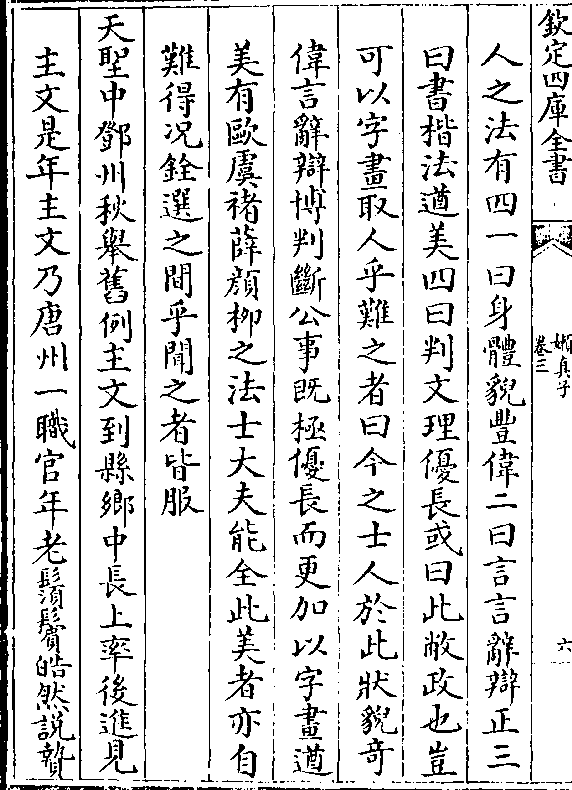 欽定四庫全書
嬾真子
卷三
六
人之法有四一曰身體貌豐偉二曰言言辭辯正三
曰書楷法遒美四曰判文理優長或曰此敝政也豈
可以字畫取人乎難之者曰今之士人於此狀貌竒
偉言辭辯博判斷公事既極優長而更加以字畫遒
美有歐虞褚薛顔柳之法士大夫能全此美者亦自
難得况銓選之間乎聞之者皆服
天聖中鄧州秋舉舊例主文到縣鄉中長上率後進見
主文是年主文乃唐州一職官年老鬚鬢皓然説贄